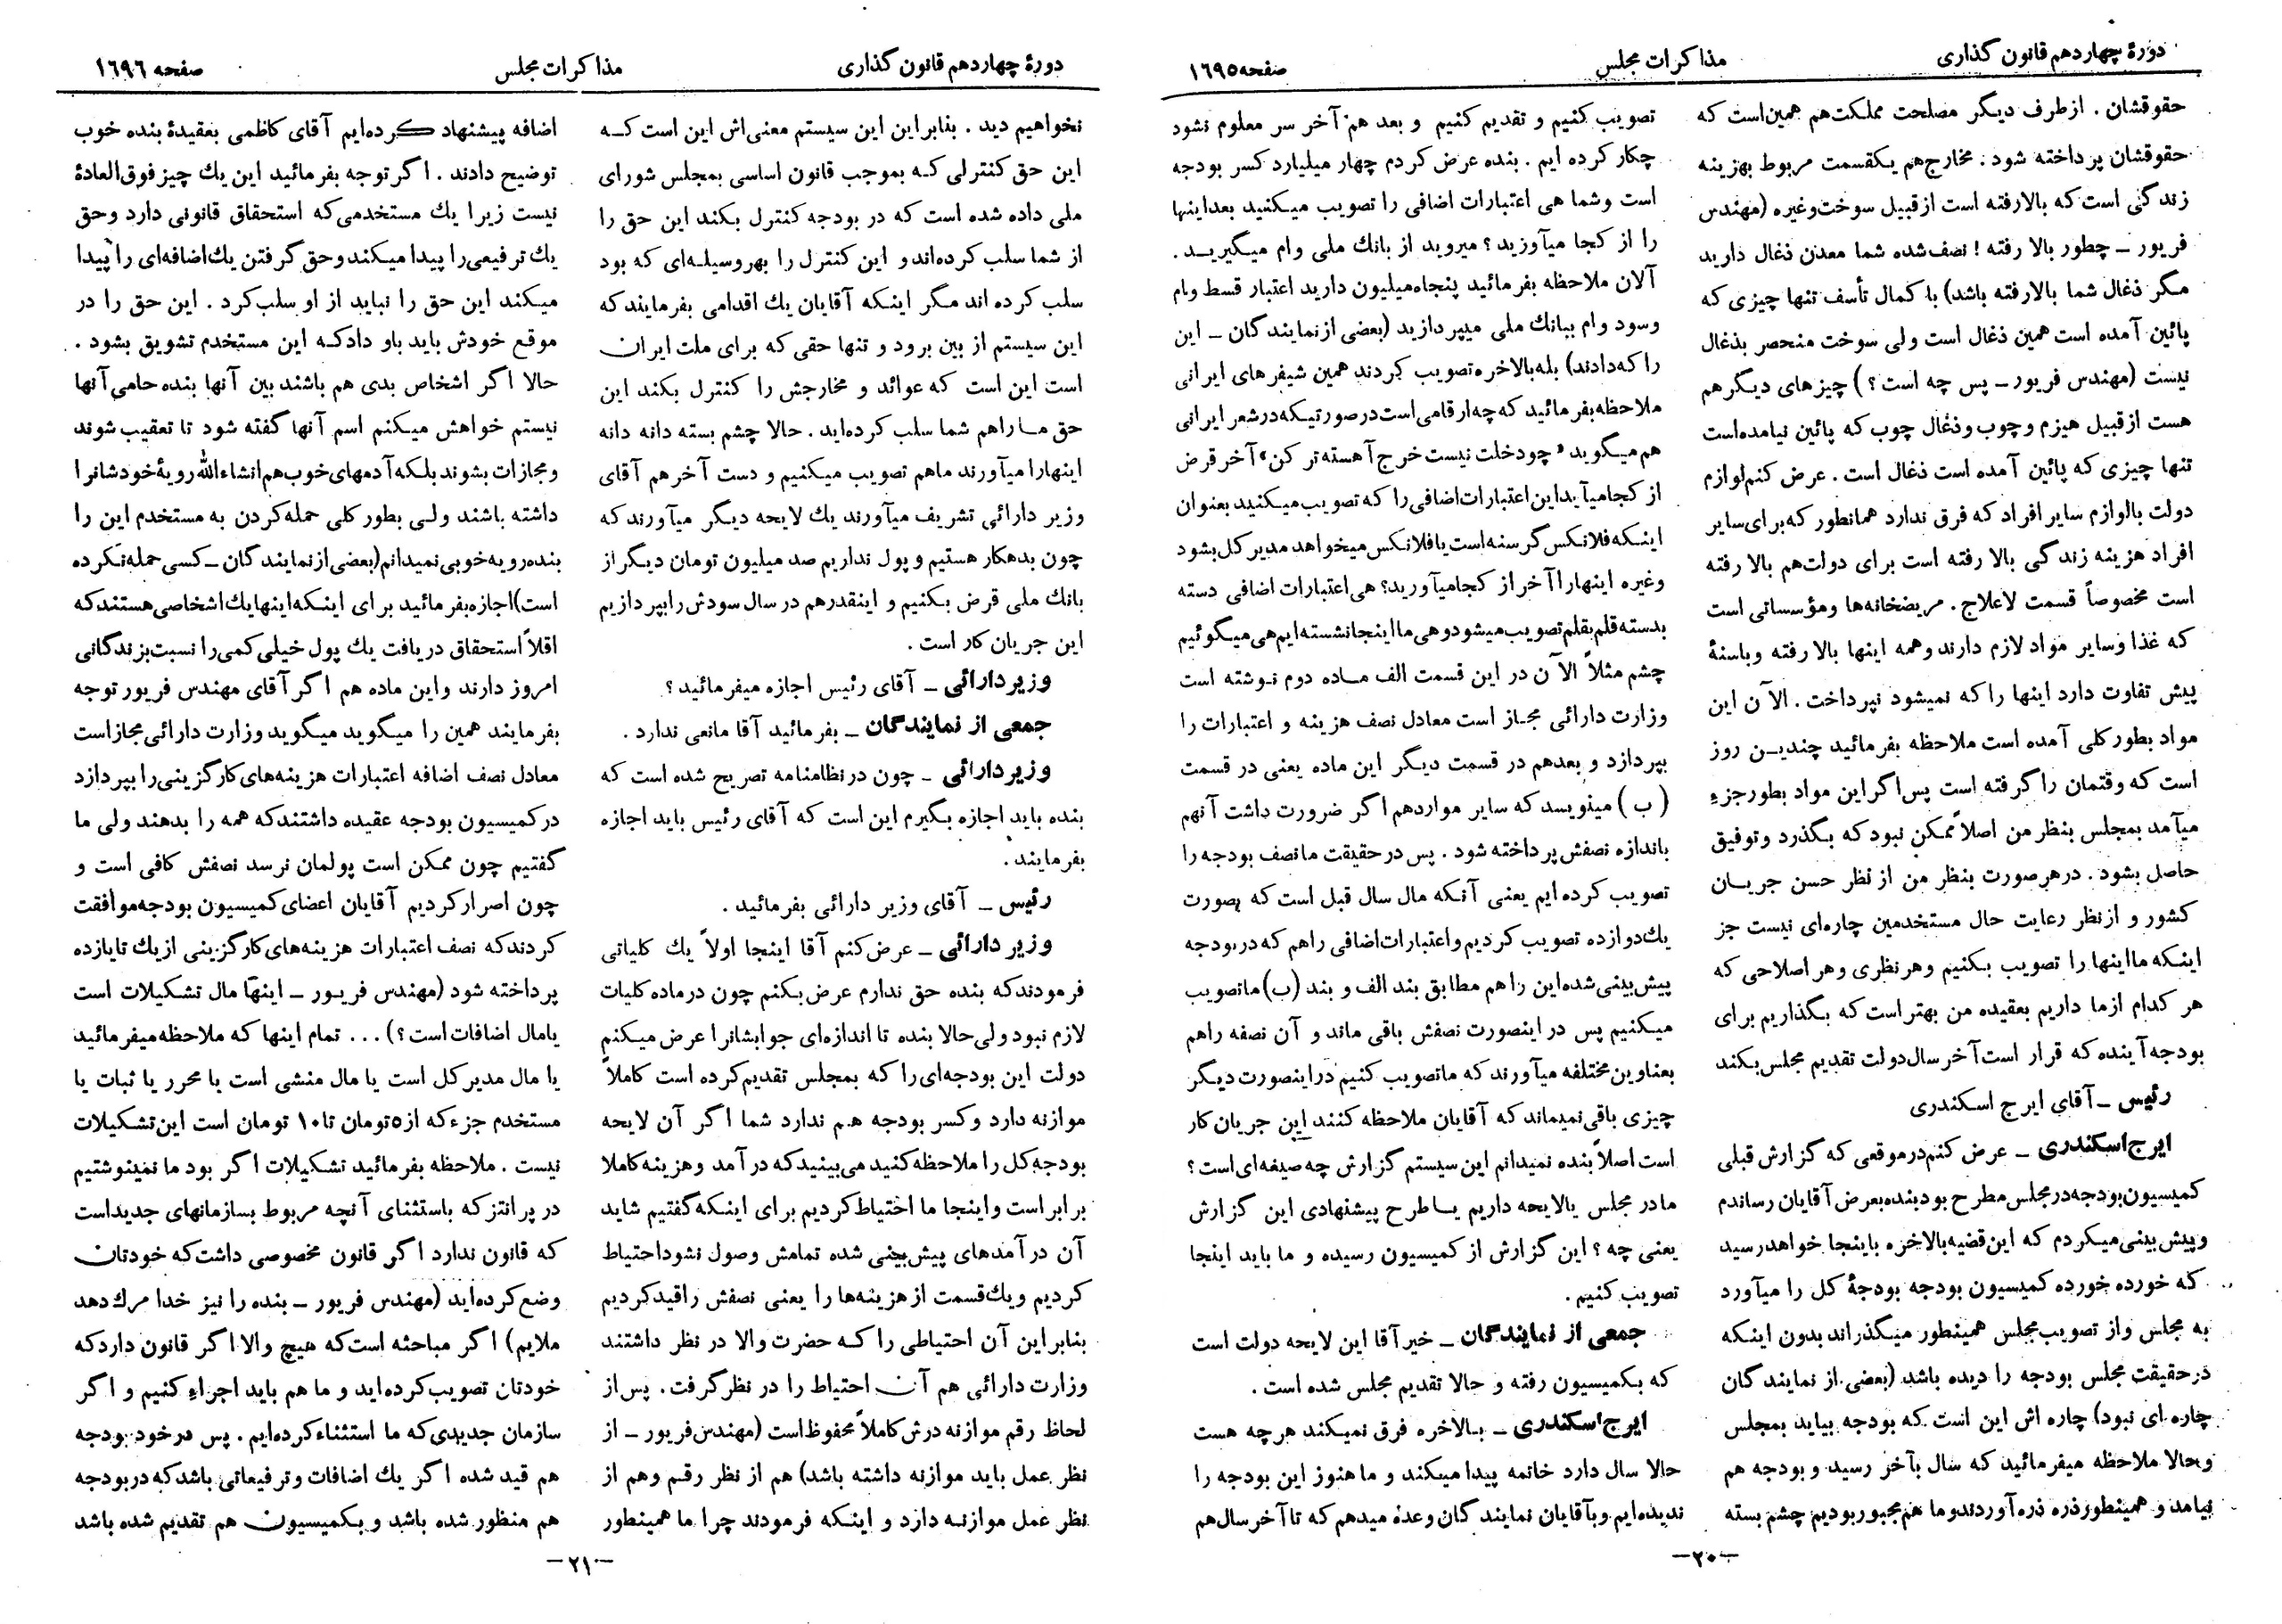 دورهٔ چهاردهم قانون گذاری
مذاکرات مجلس
صفحه ۱٦۹٥
حقوقشان . ازطرف دیگر مصلحت مملکت‌هم همین‌است که
حقوقشان پرداخته شود . مخارج‌هم یکقسمت مربوط بهزینه
زندگی است که بالارفته است ازقبیل سوخت‌وغیره (مهندس
فریور ــ چطور بالا رفته ! نصف‌شده شما معدن ذغال دارید
مگر ذغال شما بالارفته باشد) با کمال تأسف تنها چیزی که
پائین آمده است همین ذغال است ولی سوخت منحصر بذغال
نیست (مهندس فریور ــ پس چه است ؟ ) چیزهای دیگرهم
هست ازقبیل هیزم وچوب وذغال چوب که پائین نیامده‌است
تنها چیزی که پائین آمده است ذغال است . عرض کنم‌لوازم
دولت بالوازم سایر افراد که فرق ندارد همانطور که برای‌سایر
افراد هزینه زندگی بالا رفته است برای دولت‌هم بالا رفته
است مخصوصاً قسمت لاعلاج . مریضخانه‌ها ومؤسساتی است
که غذا وسایر مواد لازم دارند وهمه اینها بالا رفته وباسنهٔ
پیش تفاوت دارد اینها را که نمیشود نپرداخت . الآن این
مواد بطورکلی آمده است ملاحظه بفرمائید چندین روز
است که وقتمان را گرفته است پس‌اگر این مواد بطورجزء
میآمد بمجلس بنظر من اصلاً ممکن نبود که بگذرد وتوفیق
حاصل بشود . درهرصورت بنظر من از نظر حسن جریان
کشور و ازنظر رعایت حال مستخدمین چاره‌ای نیست جز
اینکه مااینها را تصویب بکنیم وهرنظری وهر اصلاحی که
هر کدام ازما داریم بعقیده من بهتر است که بگذاریم برای
بودجه‌آینده که قرار است‌آخر سال‌دولت تقدیم مجلس‌بکند
رئیس ــ آقای ایرج اسکندری
ایرج‌اسکندری ــ عرض کنم‌درموقعی که گزارش قبلی
کمیسیون‌بودجه‌درمجلس مطرح بود بنده‌بعرض آقایان رساندم
وپیش بینی‌میکردم که این‌قضیه‌بالاخره باینجا خواهدرسید
که خورده خورده کمیسیون بودجه بودجهٔ کل را میآورد
به مجلس واز تصویب‌مجلس همینطور میگذراند بدون اینکه
درحقیقت مجلس بودجه را دیده باشد (بعضی از نمایندگان
چاره‌ای نبود) چاره‌اش این است که بودجه بیاید بمجلس
وحالا ملاحظه میفرمائید که سال بآخر رسید و بودجه هم
نیامد و همینطور ذره ذره آوردندوما هم‌مجبور بودیم چشم بسته
تصویب کنیم و تقدیم کنیم و بعد هم آخر سر معلوم نشود
چکار کرده ایم . بنده عرض کردم چهار میلیارد کسر بودجه
است وشما هی اعتبارات اضافی را تصویب میکنید بعداینها
را از کجا میآوزید ؟ میروید از بانك ملی وام میگیرید .
آلان ملاحظه بفرمائید پنجاه‌میلیون دارید اعتبار قسط وام
وسود وام ببانك ملی میپردازید (بعضی ازنمایندگان ــ این
را که‌دادند) بله‌بالاخره‌تصویب کردند همین شیفرهای ایرانی
ملاحظه‌بفرمائید که چه‌ارقامی‌است‌درصورتیکه‌درشعر ایرانی
هم‌میگوید «چودخلت نیست خرج آهسته‌تر کن» آخر قرض
از کجامیآید این‌اعتبارات‌اضافی‌را که تصویب‌میکنید بعنوان
اینکه‌فلانکس گرسنه‌است‌یافلانکس‌میخواهد مدیرکل‌بشود
وغیره اینهارا آخر از کجامیآورید؟ هی‌اعتبارات اضافی دسته
بدسته‌قلم‌بقلم‌تصویب‌میشودوهی‌مااینجانشسته‌ایم‌هی‌میگوئیم
چشم مثلاً الآن در این قسمت الف ماده دوم نوشته است
وزارت دارائی مجاز است معادل نصف هزینه و اعتبارات را
بپردازد و بعدهم در قسمت دیگر این ماده یعنی در قسمت
( ب ) مینویسد که سایر مواردهم اگر ضرورت داشت آنهم
باندازه نصفش پرداخته شود . پس درحقیقت مانصف بودجه را
تصویب کرده‌ایم یعنی آنکه مال سال قبل است که بصورت
یك‌دوازده تصویب کردیم‌واعتبارات‌اضافی راهم که دربودجه
پیش‌بینی‌شده‌این راهم مطابق بند الف و بند (ب) ماتصویب
میکنیم پس در اینصورت نصفش باقی ماند و آن نصفه راهم
بعناوین‌مختلفه میآورند که ماتصویب کنیم دراینصورت دیگر
چیزی باقی‌نمیماند که آقایان ملاحظه کنند این جریان کار
است اصلاً بنده نمیدانم این سیستم گزارش چه صیغه‌ای‌است ؟
مادر مجلس یالایحه داریم یاطرح پیشنهادی این گزارش
یعنی چه ؟ این گزارش از کمیسیون رسیده و ما باید اینجا
تصویب کنیم.
جمعی از نمایندگان ــ خیر آقا این لایحه دولت است
که بکمیسیون رفته و حالا تقدیم مجلس شده است .
ایرج‌اسکندری ــ بالاخره فرق نمیکند هرچه هست
حالا سال دارد خاتمه پیدا میکند و ما هنوز این بودجه را
ندیده‌ایم وبآقایان نمایندگان وعده میدهم که تاآخر سال‌هم
ــ ۲۰ ــ
دورهٔ چهاردهم قانون گذاری
مذاکرات مجلس
صفحه ۱٦۹٦
نخواهیم دید . بنابراین این سیستم معنی‌اش این است که
این حق کنترلی که بموجب قانون اساسی بمجلس شورای
ملی داده شده است که در بودجه کنترل بکند این حق را
از شما سلب کرده‌اند و این کنترل را بهروسیله‌ای که بود
سلب کرده اند مگر اینکه آقایان یك اقدامی بفرمایند که
این سیستم از بین برود و تنها حقی که برای ملت ایران
است این است که عوائد و مخارجش را کنترل بکند این
حق ما راهم شما سلب کرده‌اید . حالا چشم بسته دانه دانه
اینهارا میآورند ماهم تصویب میکنیم و دست آخرهم آقای
وزیر دارائی تشریف میآورند یك لایحه دیگر میآورند که
چون بدهکار هستیم و پول نداریم صد میلیون تومان دیگر از
بانك ملی قرض بکنیم و اینقدرهم در سال سودش را بپردازیم
این جریان کار است .
وزیر دارائی ــ آقای رئیس اجازه میفرمائید ؟
جمعی از نمایندگان ــ بفرمائید آقا مانعی ندارد .
وزیر دارائی ــ چون درنظامنامه تصریح شده است که
بنده باید اجازه بگیرم این است که آقای رئیس باید اجازه
بفرمایند .
رئیس ــ آقای وزیر دارائی بفرمائید .
وزیر دارائی ــ عرض‌کنم آقا اینجا اولاً یك کلیاتی
فرمودندکه بنده حق ندارم عرض‌بکنم چون درماده کلیات
لازم نبود ولی حالا بنده تا اندازه‌ای جوابشانرا عرض میکنم
دولت این بودجه‌ای را که بمجلس تقدیم‌کرده است کاملاً
موازنه دارد وکسر بودجه هم ندارد شما اگر آن لایحه
بودجه‌کل را ملاحظه‌کنید می‌بینیدکه درآمد وهزینه‌کاملا
برابراست واینجا ما احتیاط‌کردیم برای اینکه‌گفتیم شاید
آن درآمدهای پیش‌بینی شده تمامش وصول نشوداحتیاط
کردیم ویك‌قسمت ازهزینه‌ها را یعنی نصفش راقیدکردیم
بنابراین آن احتیاطی را که حضرت والا در نظر داشتند
وزارت دارائی هم آن احتیاط را در نظرگرفت. پس‌از
لحاظ رقم موازنه درش‌کاملاً محفوظ‌است (مهندس‌فریور ــ از
نظر عمل باید موازنه داشته باشد) هم از نظر رقم وهم از
نظر عمل موازنه دارد و اینکه فرمودند چرا ما همینطور
اضافه پیشنهاد کرده‌ایم آقای کاظمی بعقیدهٔ بنده خوب
توضیح دادند . اگر توجه بفرمائید این یك چیز فوق‌العادهٔ
نیست زیرا یك مستخدمی که استحقاق قانونی دارد وحق
یك ترفیعی‌را پیدا میکند وحق گرفتن یك‌اضافه‌ای را پیدا
میکند این حق را نباید از او سلب‌کرد . این حق را در
موقع خودش باید باو دادکه این مستخدم تشویق بشود .
حالا اگر اشخاص بدی هم باشند بین آنها بنده حامی آنها
نیستم خواهش میکنم اسم آنها گفته شود تا تعقیب شوند
ومجازات بشوند بلکه آدمهای خوب‌هم‌انشاءالله رویهٔ‌خودشانرا
داشته باشند ولی بطورکلی حمله‌کردن به مستخدم این را
بنده‌رویه‌خوبی‌نمیدانم(بعضی‌ازنمایندگان ــ کسی‌حمله‌نکرده
است)اجازه‌بفرمائید برای اینکه‌اینهایك‌اشخاصی‌هستندکه
اقلاً استحقاق دریافت یك پول خیلی‌کمی‌را نسبت‌بزندگانی
امروز دارند واین ماده هم اگر آقای مهندس فریور توجه
بفرمایند همین را میگوید میگوید وزارت دارائی‌مجازاست
معادل نصف اضافه اعتبارات هزینه‌های‌کارگزینی‌را بپردازد
درکمیسیون بودجه عقیده داشتندکه همه را بدهند ولی ما
گفتیم چون ممکن است پولمان نرسد نصفش کافی است و
چون اصرارکردیم آقایان اعضای‌کمیسیون بودجه‌موافقت
کردندکه نصف اعتبارات هزینه‌های‌کارگزینی ازیك تایازده
پرداخته شود (مهندس فریور ــ اینها مال تشکیلات است
یامال اضافات است ؟) ... تمام اینها که ملاحظه‌میفرمائید
یا مال مدیرکل است یا مال منشی است یا محرر یا ثبات یا
مستخدم جزءکه از۵تومان تا۱۰ تومان است این‌تشکیلات
نیست . ملاحظه بفرمائید تشکیلات اگر بود ما نمینوشتیم
در پرانتزکه باستثنای آنچه مربوط بسازمانهای جدیداست
که قانون ندارد اگر قانون مخصوصی داشت‌که خودتان
وضع‌کرده‌اید (مهندس فریور ــ بنده را نیز خدا مرك‌دهد
ملایم) اگر مباحثه است‌که هیچ والا اگر قانون داردکه
خودتان تصویب‌کرده‌اید و ما هم باید اجراء کنیم و اگر
سازمان جدیدی‌که ما استثناءکرده‌ایم . پس درخود بودجه
هم قید شده اگر یك اضافات وترفیعاتی باشدکه دربودجه
هم منظور شده باشد و بکمیسیون هم تقدیم شده باشد
ــ ۲۱ ــ